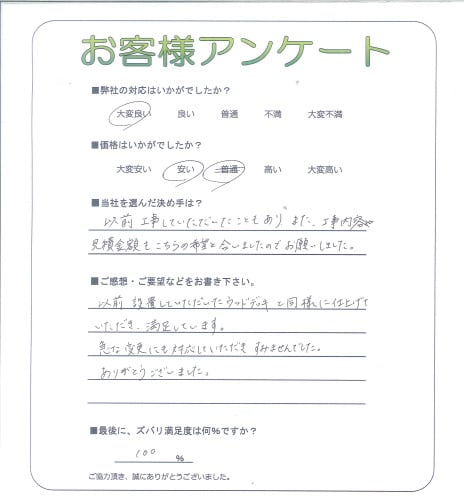 お客様アンケート
■弊社の対応はいかがでしたか？
大変良い　良い　普通　不満　大変不満
■価格はいかがでしたか？
大変安い　安い　普通　高い　大変高い
■当社を選んだ決め手は？
以前工事していただいたこともあり また、工事内容や
見積金額もこちらの希望と合いましたのでお願いしました。
■ご感想・ご要望などをお書き下さい。
以前設置していただいたウッドデッキと同様に仕上げて
いただき、満足しています。
急な変更にも対応していただき すみませんでした。
ありがとうございました。
■最後に、ズバリ満足度は何％ですか？
100 ％
ご協力頂き、誠にありがとうございました。